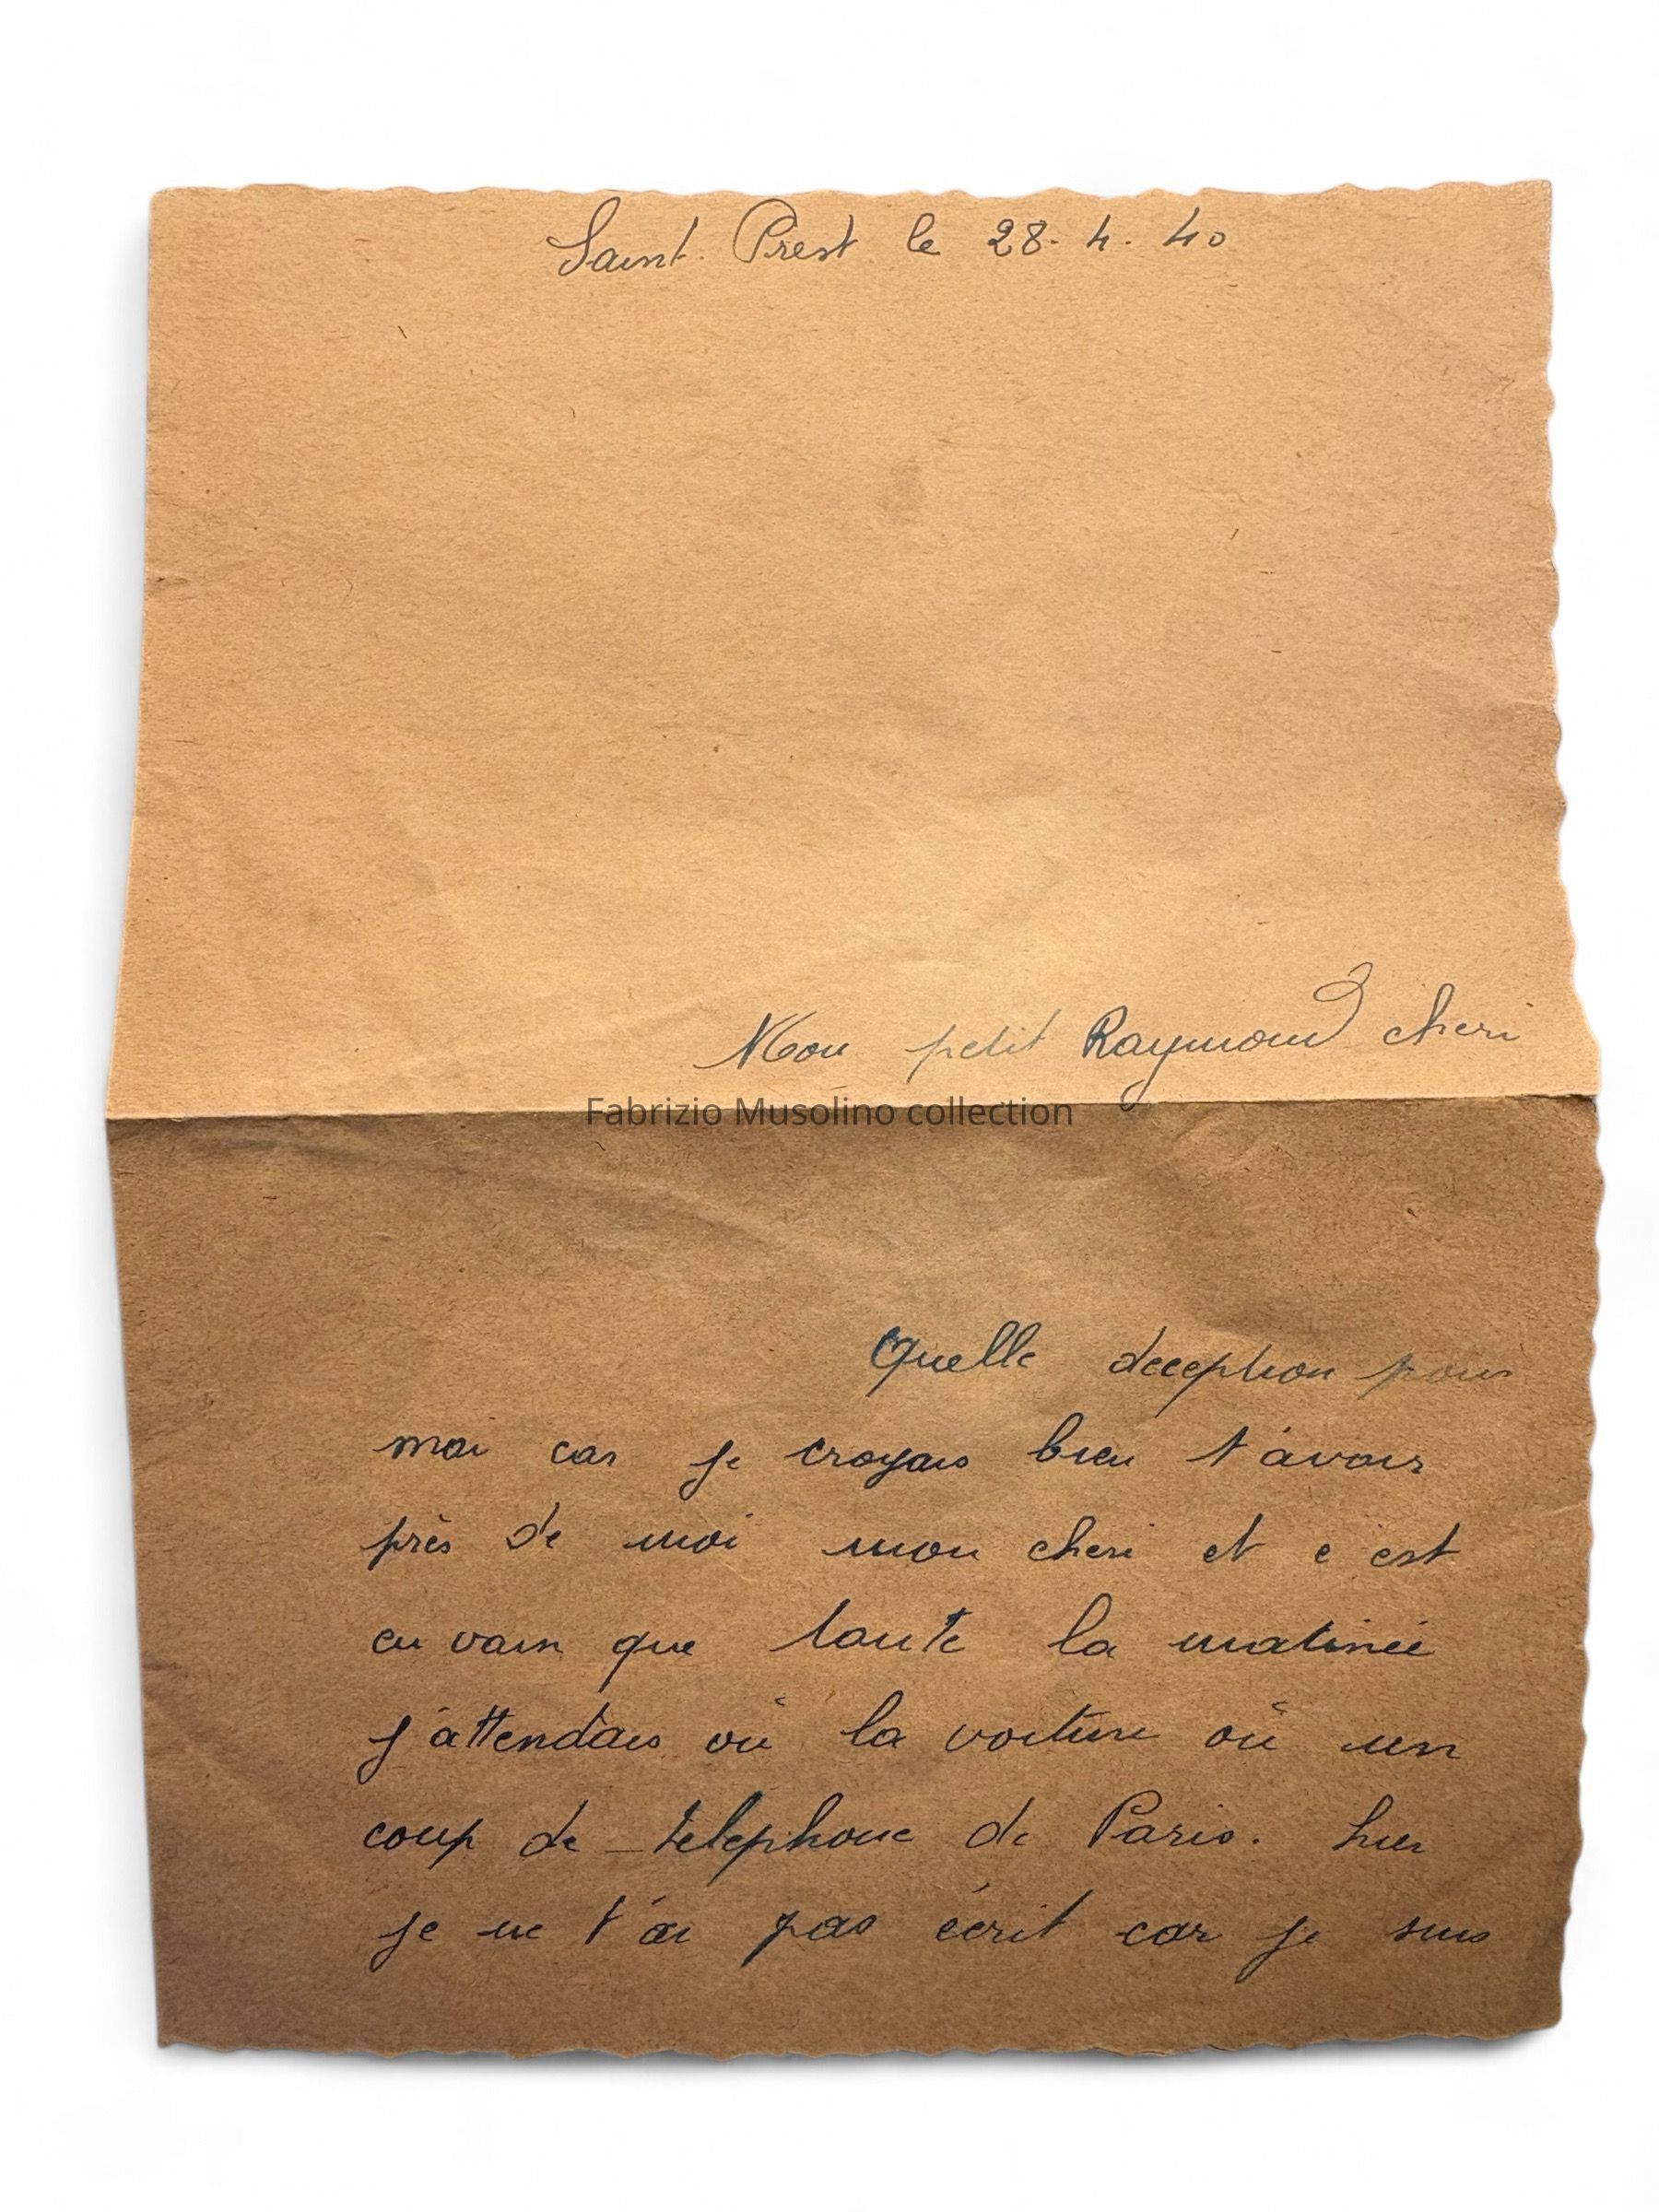 Saint. Prest le 28. 4. 40
Mon petit Raymond cheri
Fabrizio Musolino collection
Quelle deception pour
moi car je croyais bien t'avoir
près de moi mon cheri et c'est
en vain que toute la matinée
j'attendais où la voiture où un
coup de telephone de Paris. hier
je ne t'ai pas écrit car je suis